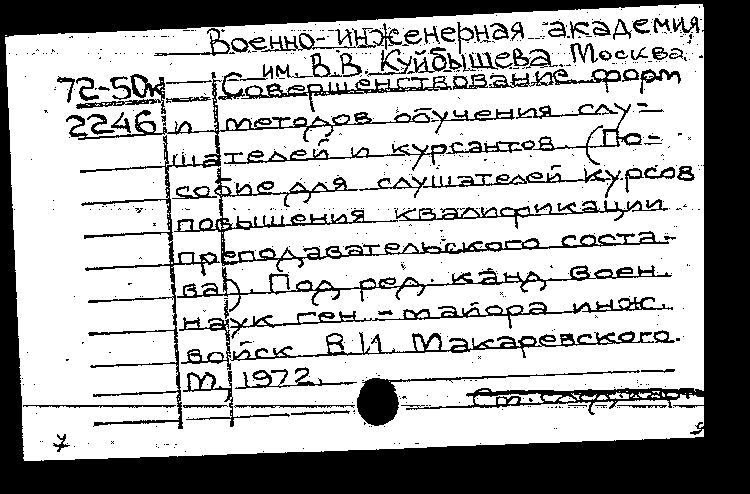 Военно-инженерная академия
им. В.В. Куйбышева Москва.
72-50к Совершенствование форм
2246 и методов обучения слу-
шателей и курсантов (По-
собие для слушателей курсов
повышения квалификации
преподавательского соста-
ва). Под ред. канд. воен.
наук ген.-майора инж.
войск В.И. Макаревского.
М., 1972.
См. след. карт
7